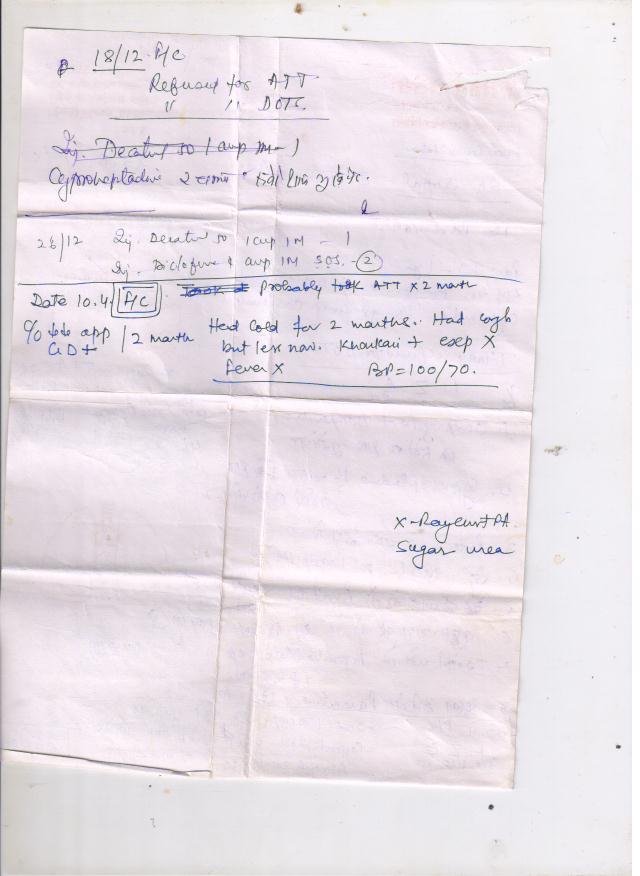 18/12 P/C
Refused for ATT
" " DOTS.
Inj. 50 1 amp IM - 1
Cyproheptadine 2
26/12 Inj. 50 1 amp IM - 1
Inj. 1 amp IM SOS. - 2
Date 10.4. P/C Took Probably took ATT x 2 month
C/o app / 2 month Had Cold for 2 months. Had cough
GD+ but less now. + X
fever X BP=100/70.
X-Ray Chest PA
Sugar urea